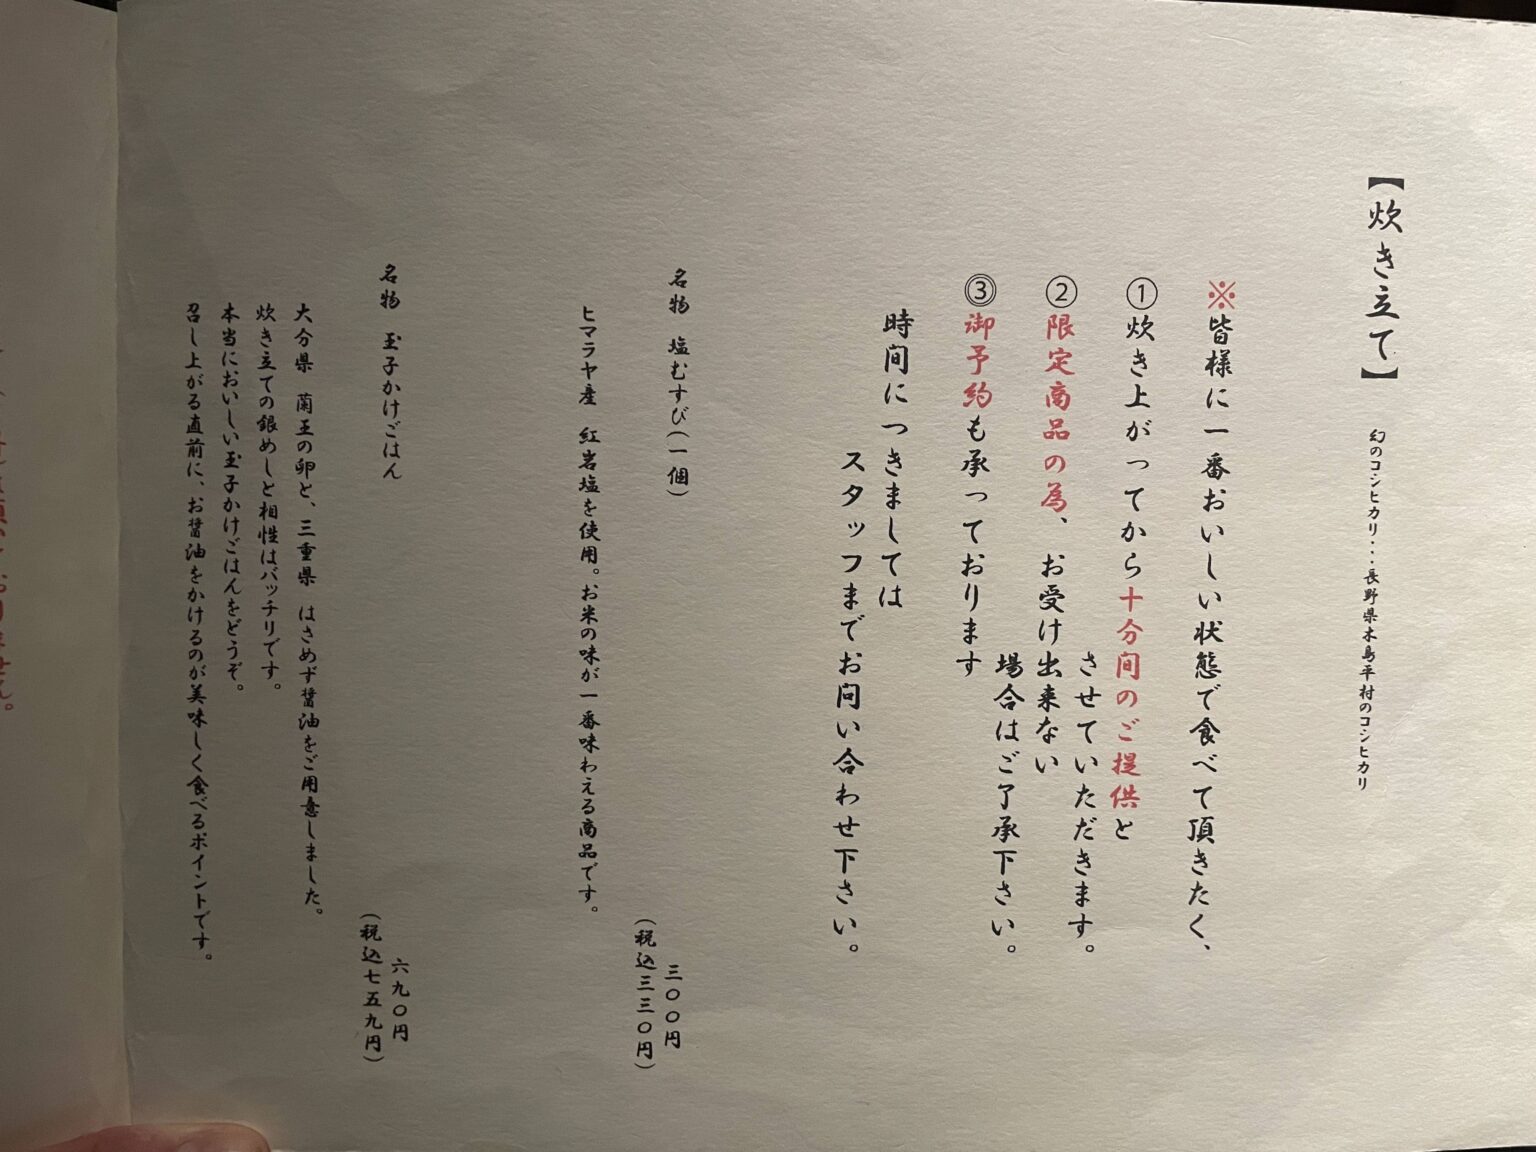 【炊き立て】 幻のコシヒカリ・・・長野県木島平村のコシヒカリ
※皆様に一番おいしい状態で食べて頂きたく、
①炊き上がってから十分間のご提供と
させていただきます。
②限定商品の為、お受け出来ない
場合はご了承下さい。
③御予約も承っております
時間につきましては
スタッフまでお問い合わせ下さい。
名物 塩むすび(一個) 三〇〇円
(税込三三〇円)
ヒマラヤ産 紅岩塩を使用。お米の味が一番味わえる商品です。
名物 玉子かけごはん 六九〇円
(税込七五九円)
大分県 蘭王の卵と、三重県 はさめず醤油をご用意しました。
炊き立ての銀めしと相性はバッチリです。
本当においしい玉子かけごはんをどうぞ。
召し上がる直前に、お醤油をかけるのが美味しく食べるポイントです。